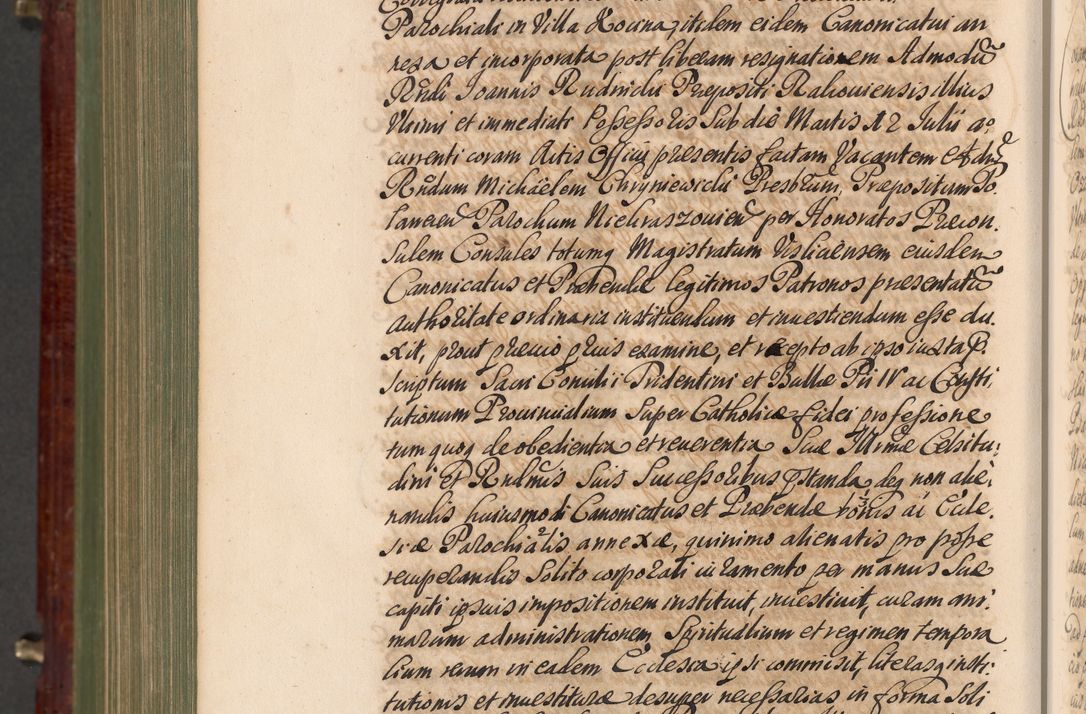 Parochiali in Villa Kocina, itidem eidem Canonicatui an
nexa et incorporata post liberam resignationem Admodũ
Rndi Ioannis Rudnicki Præpositi Rakoviensis illius
Ultimi et immediati Possessoris Sub die Martis 12 Iulii a°
currenti coram Actis Officii præsentis factam Vacantem
Rndum Michaëlem Chryniewicki Presbrum, Præpositum Po
laneceñ Parochum Niekraszovieñ per Honoratos Præcon.
Sulem Consules totumq Magistratum Visliciensem eiusdem
Canonicatus et Præbendæ legitimos Patronos præsentatũ
authoritate ordinaria instituendum et investiendum esse du.
xit, prout prævio prius examine, et recepto ab ipso iuxta P.
Scriptum Sacri Concilii Tridentini et Bullæ Pii IV ac Consti
tutionum Provincialium Super Catholicæ fidei professione
tum quoq de obedientia et reverentia Suæ Illrmæ Celsitu:
dini et Rndmis Suis Successoribus pstanda deq non alie:
nandis huiusmodi Canonicatus et Præbendæ bonis ac Eccle.
siæ Parochialis annexæ, quinimo alienatis pro posse
recuperandis Solito corporali iuramento per manus Suæ
capiti ipsius impositionem instituit, investivit, curam ani:
marum administrationem Spiritualium et regimen tempora
lium rerum in eadem Ecclesia ipsi commisit, literasq insti:
tutionis et investituræ desuper necessarias in forma Soli